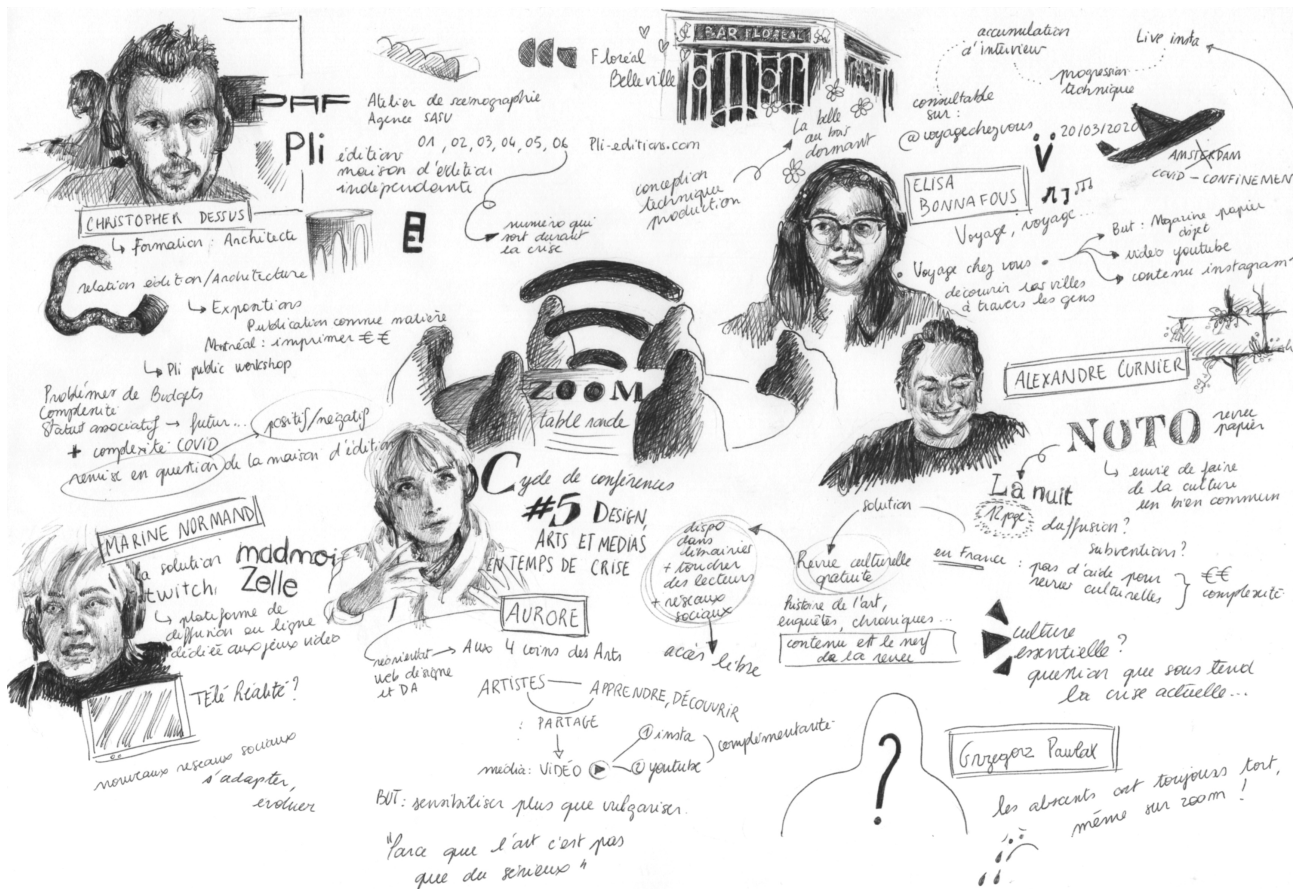 PAF
Atelier de scénographie
Agence SASU
Pli
édition
maison d'édition
indépendante
01, 02, 03, 04, 05, 06
Pli-editions.com
numéro qui
sort durant
la crise
CHRISTOPHER DESSUS
↳ Formation : Architecte
relation édition/Architecture
↳ Expositions
Publication comme matière
Montréal : imprimer €€
↳ Pli public workshop
Problèmes de Budgets
Complexité
Status associatif → futur... positif/négatif
+ complexité COVID
remise en question de la maison d'édition
Floréal
Belleville
BAR FLORÉAL
La belle
au bois
dormant
conception
technique
production
accumulation
d'interview
Live insta
progression
technique
consultable
sur :
@voyagechezvous
20/03/2020
AMSTERDAM
COVID - CONFINEMEN
ELISA
BONNAFOUS
Voyage, voyage...
• Voyage chez vous •
découvrir les villes
à travers les gens
But : Magazine papier
objet
video youtube
contenu instagram
ZOOM
table ronde
Cycle de conférences
#5 DESIGN,
ARTS ET MEDIAS
EN TEMPS DE CRISE
ALEXANDRE CURNIER
NOTO
revue
papier
↳ envie de faire
de la culture
un bien commun
La nuit
12 page
diffusion?
subventions?
en France : pas d'aide pour
revues culturelles
€€
complexité
solution
Revue culturelle
gratuite
histoire de l'art,
enquêtes, chroniques...
contenu est le nerf
de la revue
dispo
dans
+ toucher
des lecteurs
+ réseaux
sociaux
accès libre
culture
essentielle?
question que sous tend
la crise actuelle...
MARINE NORMAND
la solution
twitch
madmoi
Zelle
↳ plateforme de
diffusion en ligne
dédiée aux jeux vidéo
TÉLÉ RÉALITÉ?
nouveaux reseaux sociaux
s'adapter,
evoluer
AURORE
web designe
et DA
→ Aux 4 coins des Arts
ARTISTES — APPRENDRE, DÉCOUVRIR
: PARTAGE
média : VIDÉO
① insta
② youtube
complémentarité
BUT : sensibiliser plus que vulgariser.
"Parce que l'art c'est pas
que du sérieux"
?
Grzegorz Pawlak
les absents ont toujours tort,
même sur zoom !